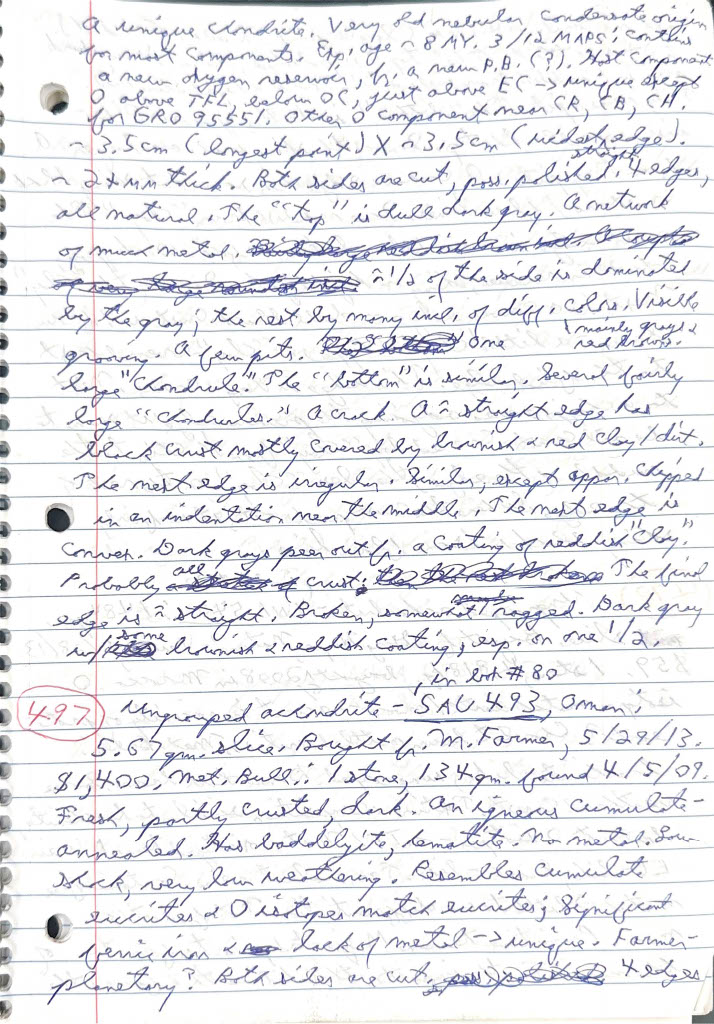 A unique chondrite. Very old nebular condensate origin
for most components. Exp. age ~ 8 MY. 3/12 MAPS: contains
a new oxygen reservoir, fr. a new P.B. (?). Host component
O above TFL, below OC, just above EC → unique except
for GRO 95551. Other O component near CR, CB, CH.
~ 3.5cm (longest point) X ~ 3.5cm (widest edge).
straight
~ 2+ mm thick. Both sides are cut, poss. polished. 4 edges,
all natural. The "top" is dull dark gray. A network
of much metal.
≈ 1/2 of the side is dominated
by the gray; the rest by many incl. of diff. colors. Visible
mainly grays &
red browns.
grooving. A few pits. One
large "chondrule." The "bottom" is similar. Several fairly
large "chondrules." A crack. A ≈ straight edge has
black crust mostly covered by brownish & red clay/dirt.
The next edge is irregular. Similar, except appar. chipped
in an indentation near the middle. The next edge is
convex. Dark grays peer out fr. a coating of reddish "clay."
Probably all crust. The final
edge is ≈ straight. Broken, somewhat ragged. Dark gray
w/ some brownish & reddish coating, esp. on one 1/2.
in box #80
497 Ungrouped achondrite - SAU 493, Oman:
5.67 gm. slice. Bought fr. M. Farmer, 5/29/13.
$1,400. Met. Bull.: 1 stone, 134 gm. found 4/5/09.
Fresh, partly crusted, dark. An igneous cumulate -
annealed. Has baddelyite, hematite. No metal. Low
shock, very low weathering. Resembles cumulate
eucrites & O isotopes match eucrites; significant
ferric iron & lack of metal → unique. Farmer-
planetary? Both sides are cut. 4 edges-